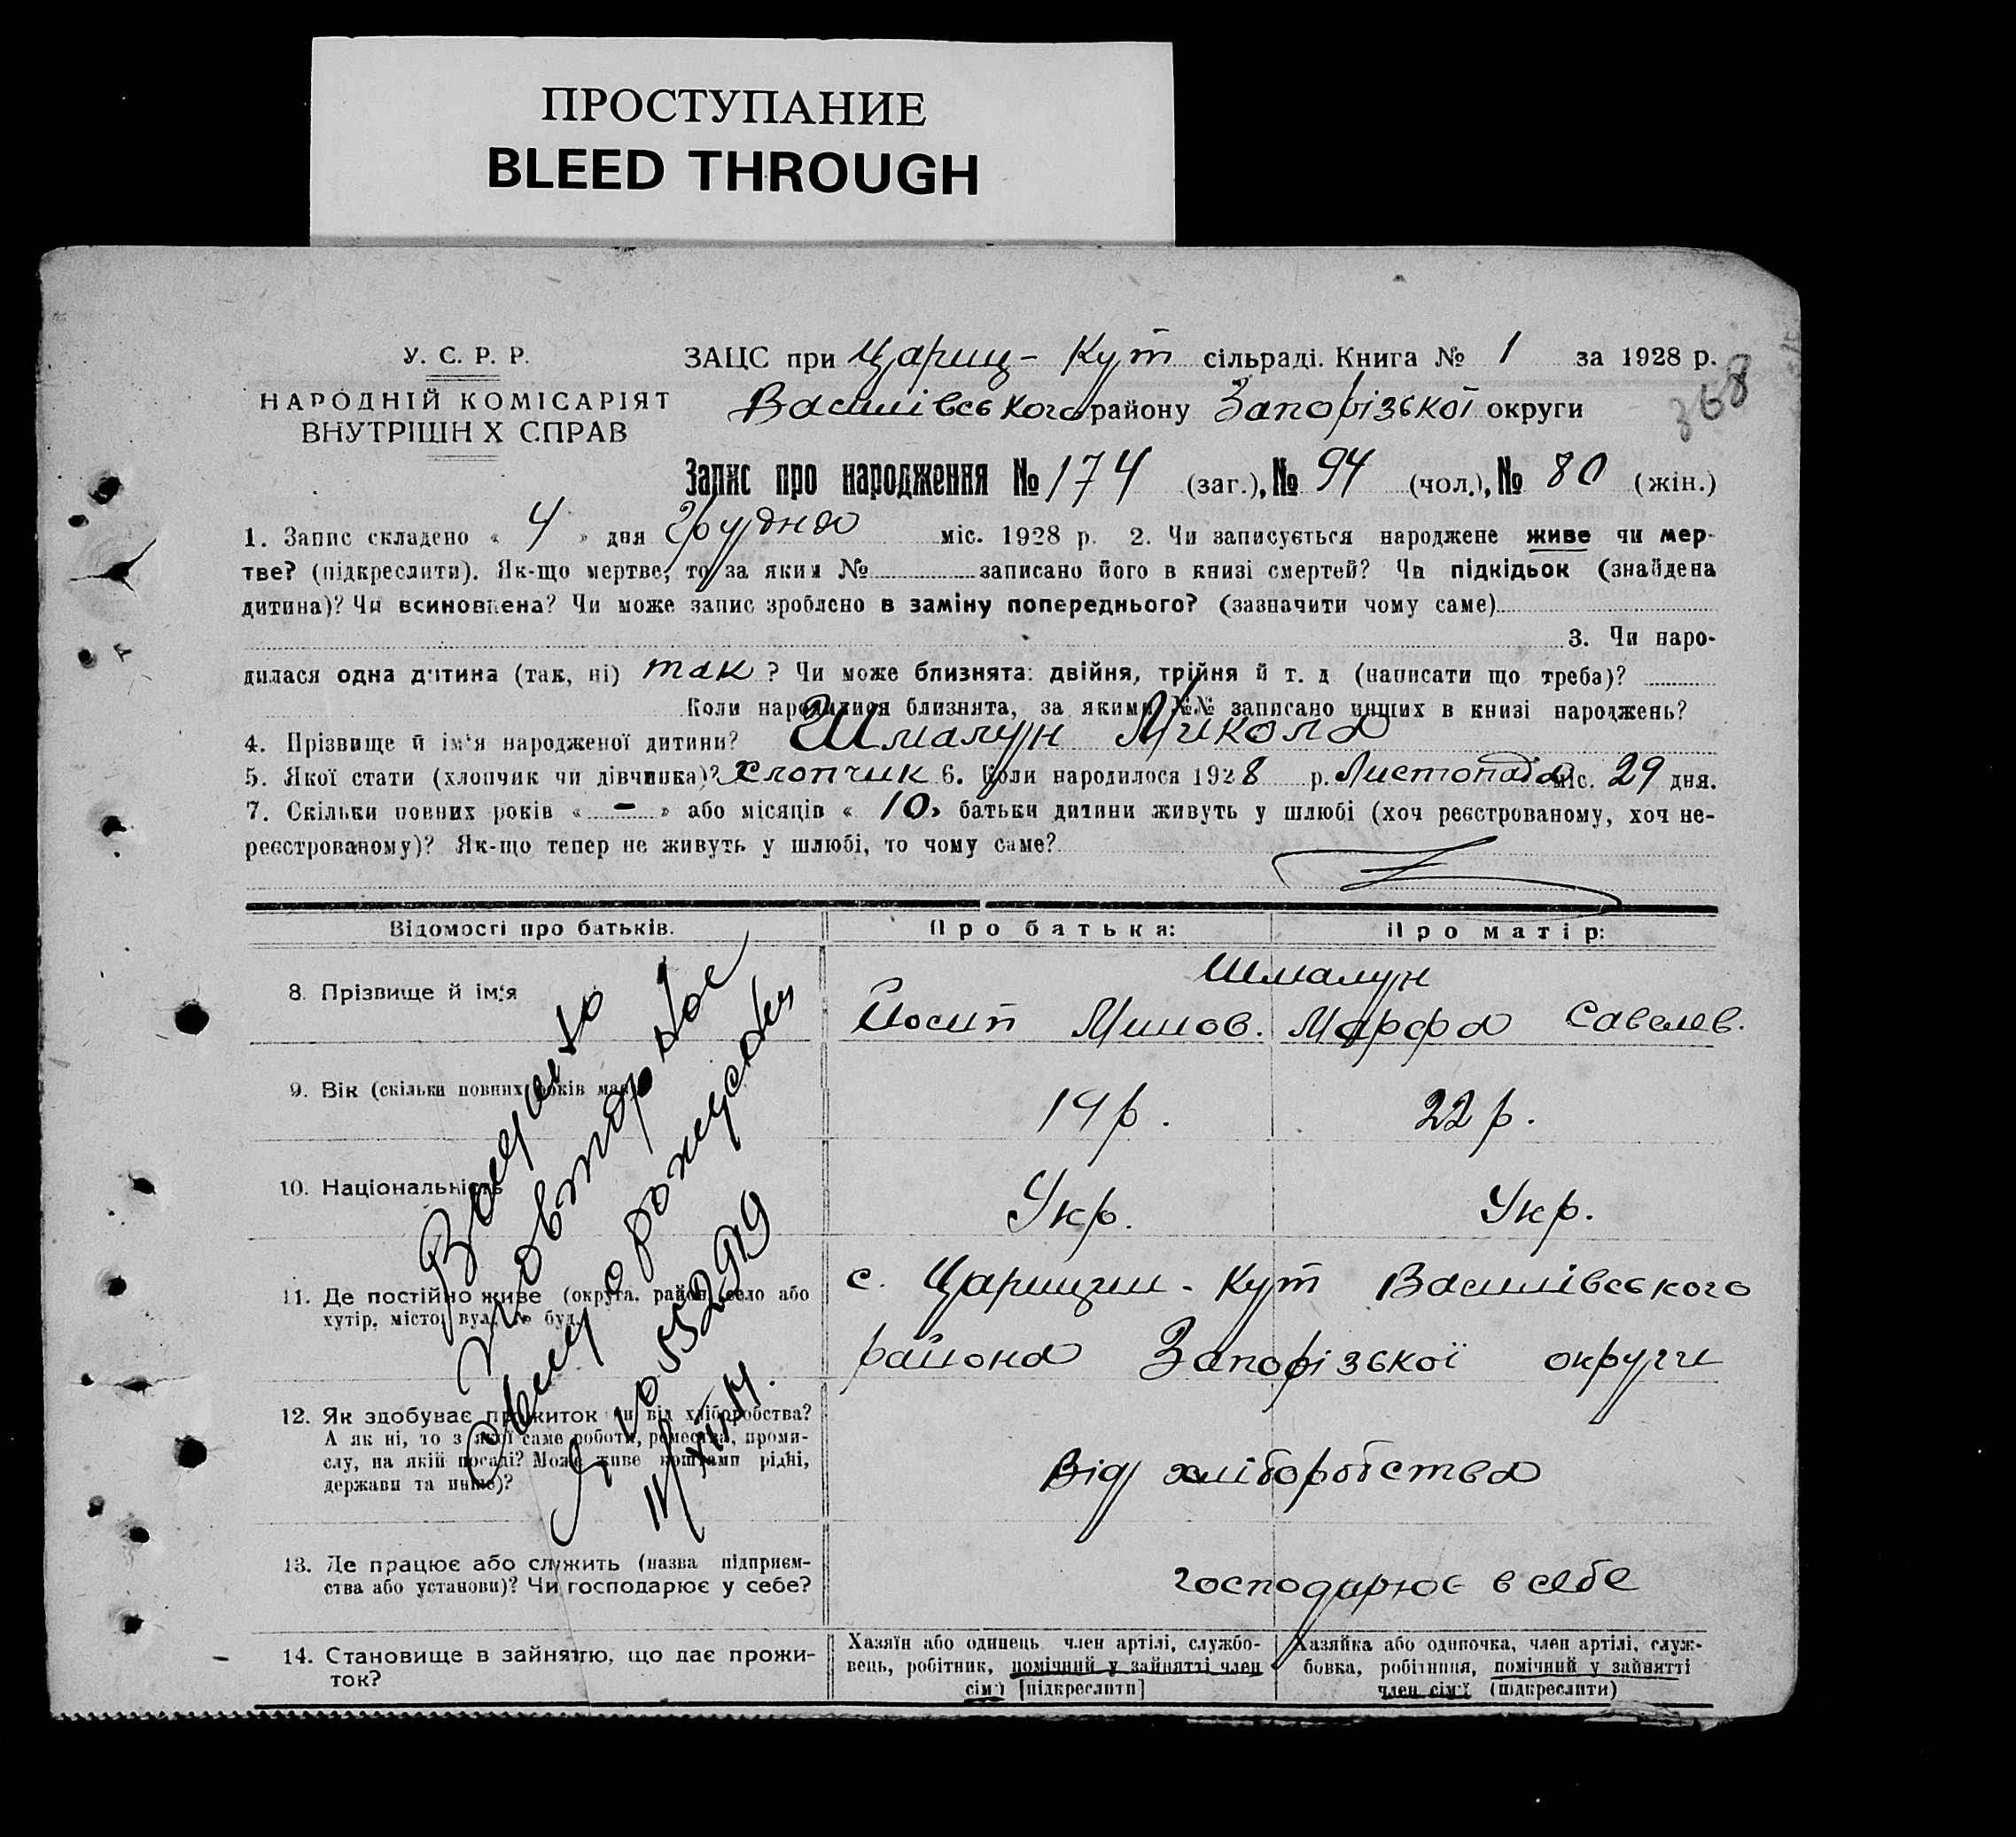 ПРОСТУПАНИЕ
BLEED THROUGH
У. С. Р. Р.
НАРОДНІЙ КОМІСАРІЯТ
ВНУТРІШН Х СПРАВ
ЗАЦС при Цариц- Кут сільраді. Книга № 1 за 1928 р.
368
Василівського району Запорізької округи
Запис про народження № 174 (заг.), № 94 (чол.), № 80 (жін.)
1. Запис складено « 4 » дня Грудня міс. 1928 р. 2. Чи записується народжене живе чи мер-
тве? (підкреслити). Як-що мертве, то за яким № записано його в книзі смертей? Чи підкідьок (знайдена
дитина)? Чи всиновлена? Чи може запис зроблено в заміну попереднього? (зазначити чому саме)
3. Чи наро-
дилася одна дитина (так, ні) так ? Чи може близнята: двійня, трійня й т. д (написати що треба)?
Коли народилися близнята, за якими №№ записано инших в книзі народжень?
4. Прізвище й ім'я народженої дитини? Шмалун Микола
5. Якої стати (хлопчик чи дівчинка)? Хлопчик 6. Коли народилося 1928 р. Листопада міс. 29 дня.
7. Скільки повних років « - » або місяців « 10 » батьки дитини живуть у шлюбі (хоч реєстрованому, хоч не-
реєстрованому)? Як-що тепер не живуть у шлюбі, то чому саме?
Відомості про батьків. Про батька: Про матір:
Шмалун
8. Прізвище й ім'я Йосип Минов. Марфа Савелев.
9. Вік (скільки повних років має) 19 р. 22 р.
10. Національність Укр. Укр.
11. Де постійно живе (округа, район, село або
хутір, місто, вул. № буд.
с. Царицин - Кут Василівського
района Запорізької округи
12. Як здобуває прожиток чи від хліборобства?
А як ні, то з якої саме роботи, ремества, проми-
слу, на якій посаді? Може живе коштами рідні,
держави та инше)?
Від хліборобства
13. Де працює або служить (назва підприєм-
ства або установи)? Чи господарює у себе?
господарює в себе
14. Становище в зайняттю, що дає прожи-
ток?
Хазяїн або одинець член артілі, службо-
вець, робітник, помічний у зайнятті член
сім'ї [підкреслити]
Хазяйка або одиночка, член артілі, служ-
бовка, робітниця, помічний у зайнятті
член сім'ї (підкреслити)
Выдано
повторное
свид о рождении
Я ю 552919